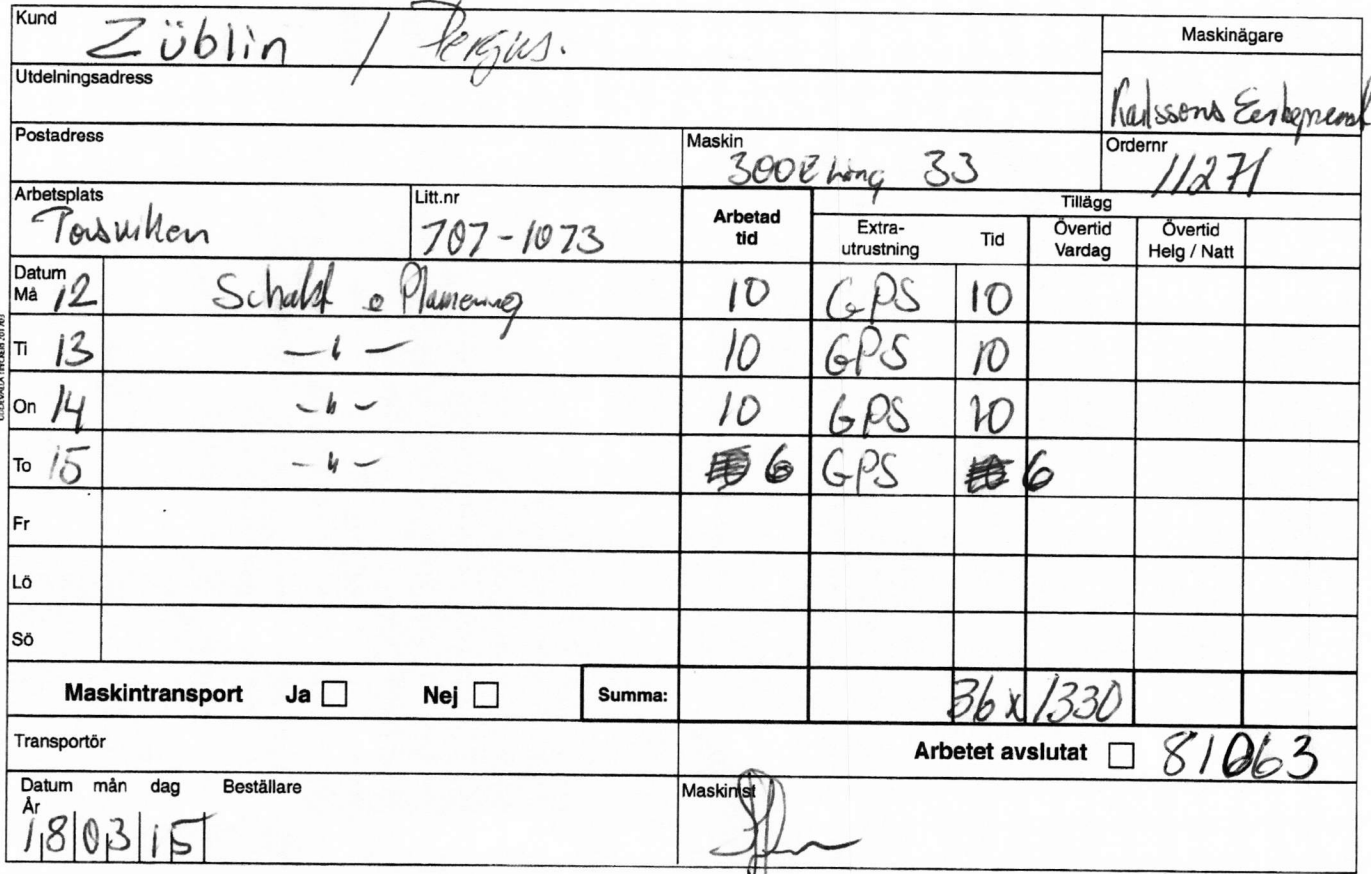 Kund Züblin / Pergus.
Maskinägare
Utdelningsadress
Karlssons
Postadress
Maskin 300E Long 33
Ordernr 11271
Arbetsplats
Litt.nr 707-1073
Arbetad tid
Tillägg
Extra-utrustning Tid Övertid Vardag Övertid Helg / Natt
Datum
Må 12 Schakt o Planering 10 GPS 10
Ti 13 -"- 10 GPS 10
On 14 -"- 10 GPS 10
To 15 -"- 6 GPS 6
Fr
Lö
Sö
Maskintransport Ja Nej Summa: 36 x 1330
Transportör
Arbetet avslutat 81063
Datum mån dag Beställare
År
18 03 15
Maskinist